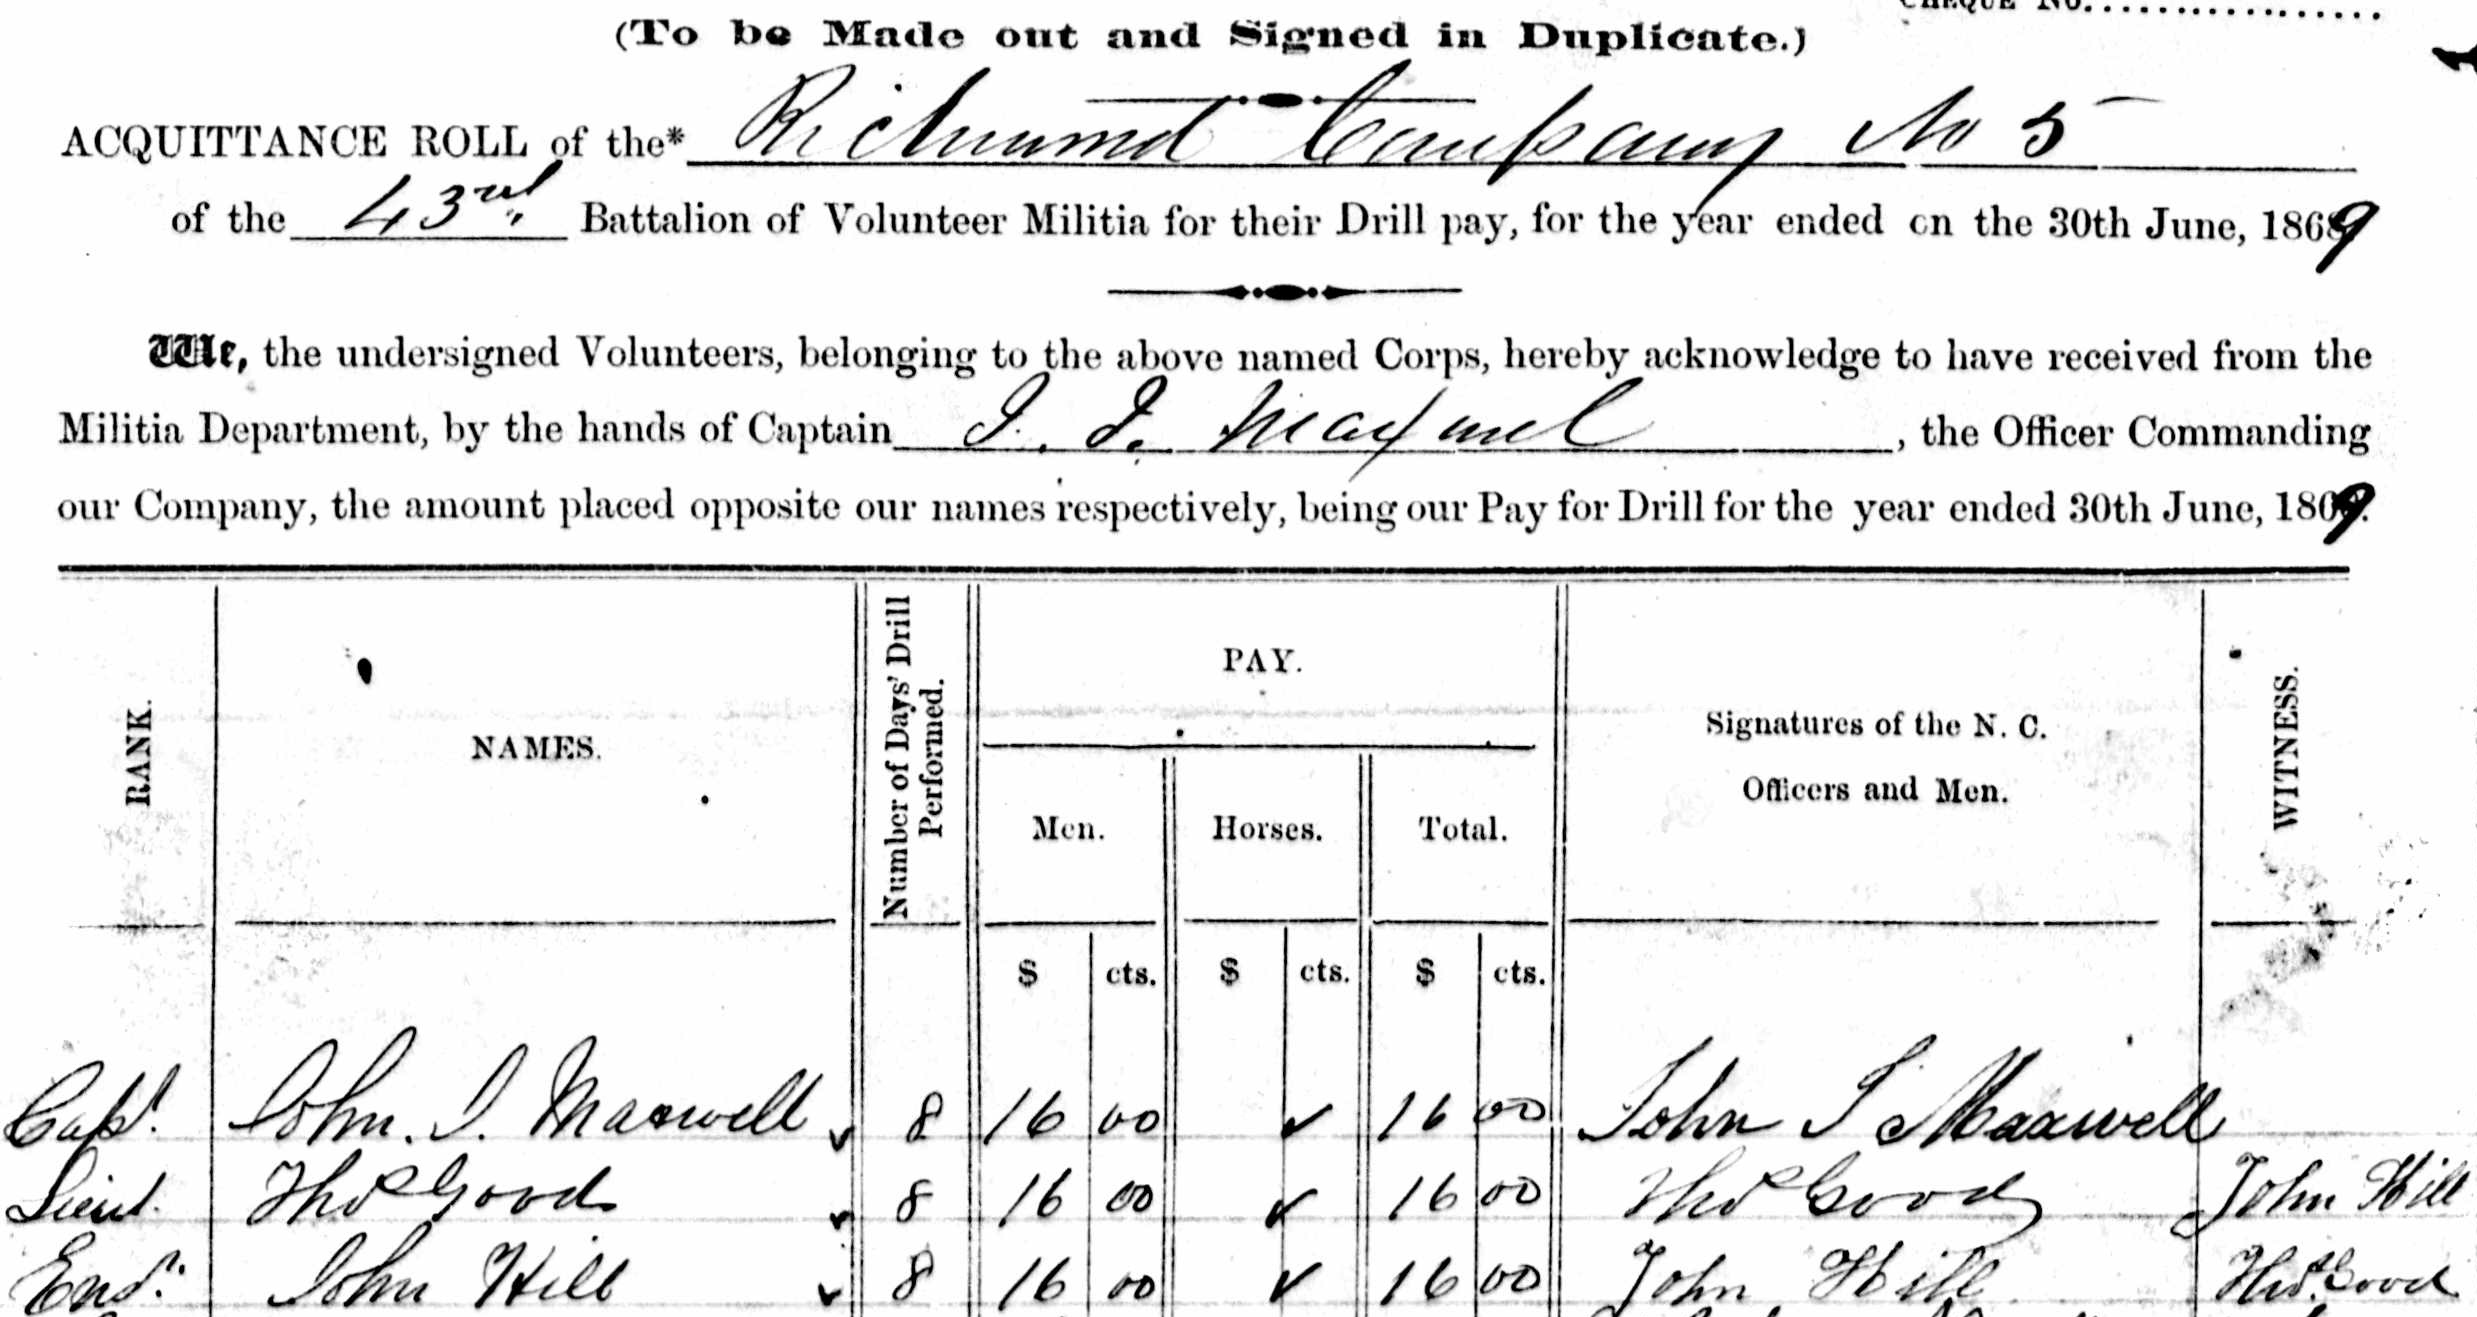 CHEQUE NO.................
(To be Made out and Signed in Duplicate.)
ACQUITTANCE ROLL of the* Richmond Company No 5
of the 43rd Battalion of Volunteer Militia for their Drill pay, for the year ended on the 30th June, 1869
We, the undersigned Volunteers, belonging to the above named Corps, hereby acknowledge to have received from the
Militia Department, by the hands of Captain J. J. Maxwel, the Officer Commanding
our Company, the amount placed opposite our names respectively, being our Pay for Drill for the year ended 30th June, 1869.
RANK. NAMES. Number of Days' Drill Performed. PAY. Signatures of the N. C. Officers and Men. WITNESS.
Men. Horses. Total.
$ cts. $ cts. $ cts.
Capt. John. J. Maxwell 8 16 00 ✓ 16 00 John J Maxwell
Lieut. Thos Good 8 16 00 ✓ 16 00 Thos Good John Hill
Ens. John Hill 8 16 00 ✓ 16 00 John Hill Thos. Good